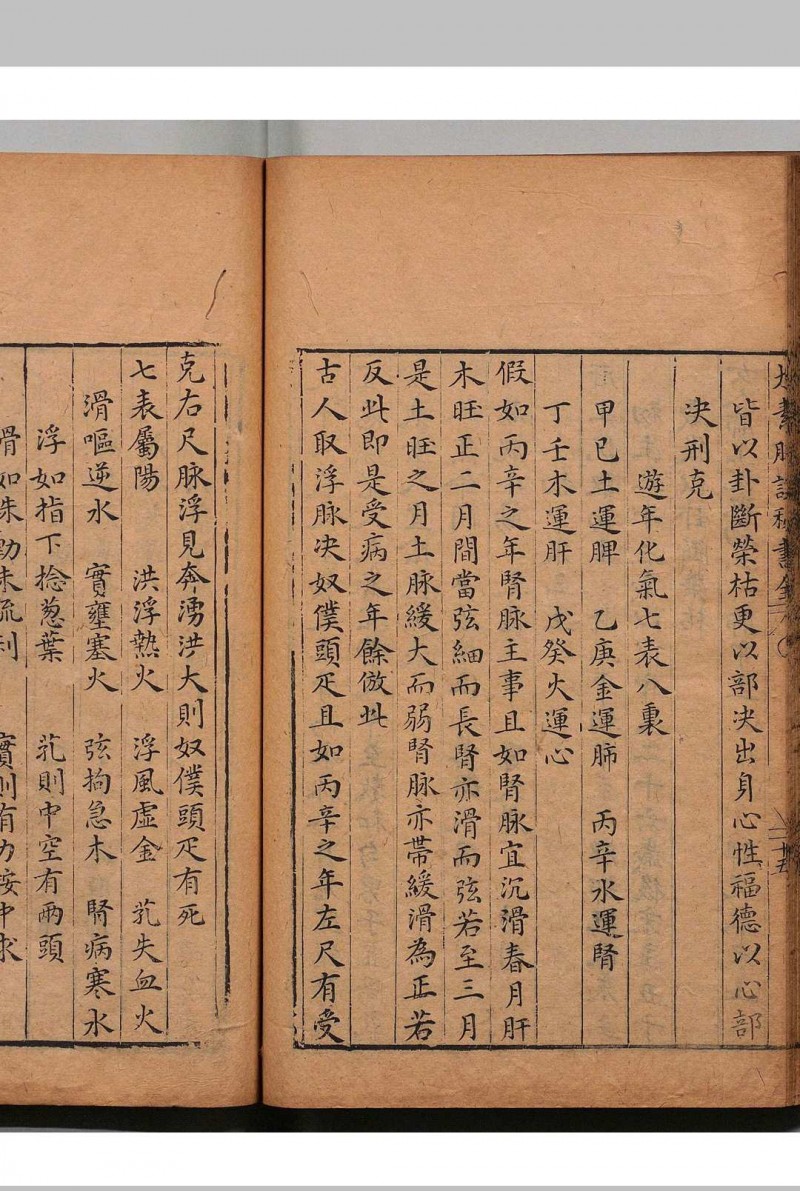 太素脉訣秘書全
二十五
皆以卦斷榮枯更以部决出身心性福德以心部
决刑克
遊年化氣七表八裏
甲巳土運脾　乙庚金運肺　丙辛水運腎
丁壬木運肝　戊癸火運心
假如丙辛之年腎脉主事且如腎脉宜沉滑春月肝
木旺正二月間當弦細而長腎亦滑而弦若至三月
是土旺之月土脉緩大而弱腎脉亦帶緩滑為正若
反此即是受病之年餘倣此
古人取浮脉决奴僕頭疋且如丙辛之年左尺有受
克右尺脉浮見奔湧洪大則奴僕頭疋有死
七表屬陽　洪浮熱火　浮風虛金　芤失血火
滑嘔逆水　實壅塞火　弦拘急木　腎病寒水
浮如指下捻葱葉　芤則中空有兩頭
滑如珠動未流利　實則有力按中求